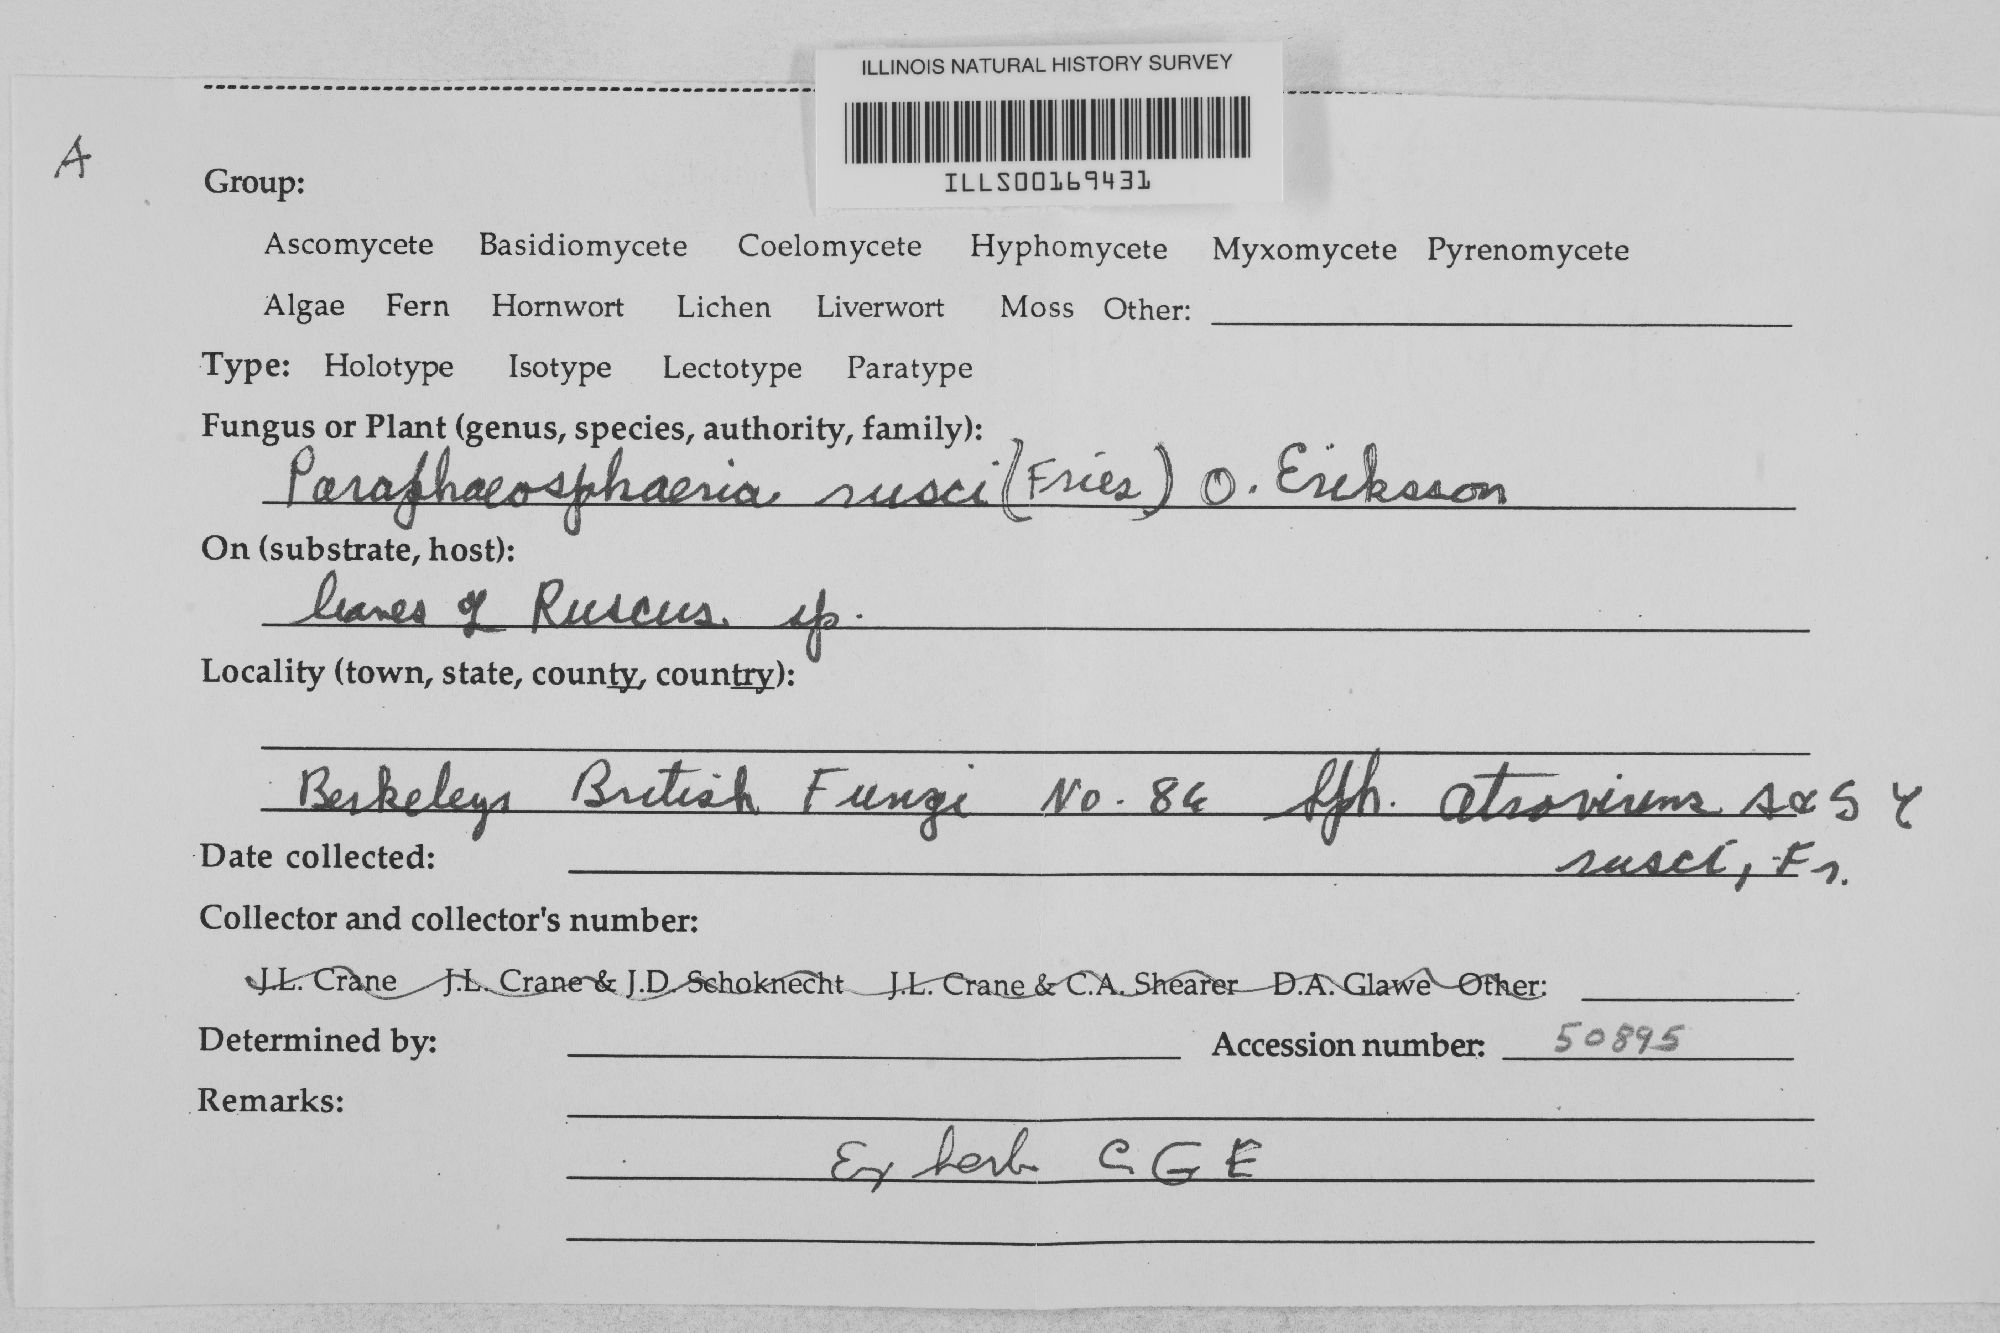 ILLINOIS NATURAL HISTORY SURVEY
ILLS00169431
A
Group:
Ascomycete Basidiomycete Coelomycete Hyphomycete Myxomycete Pyrenomycete
Algae Fern Hornwort Lichen Liverwort Moss Other:
Type: Holotype Isotype Lectotype Paratype
Fungus or Plant (genus, species, authority, family):
Paraphaeosphaeria rusci (Fries) O. Eriksson
On (substrate, host):
leaves of Ruscus sp.
Locality (town, state, county, country):
Berkeleys British Fungi No. Sph. atrovirens A & S
rusci, Fr.
Date collected:
Collector and collector's number:
J.L. Crane J.L. Crane & J.D. Schoknecht J.L. Crane & C.A. Shearer D.A. Glawe Other:
Determined by: Accession number: 50895
Remarks:
Ex herb CGE